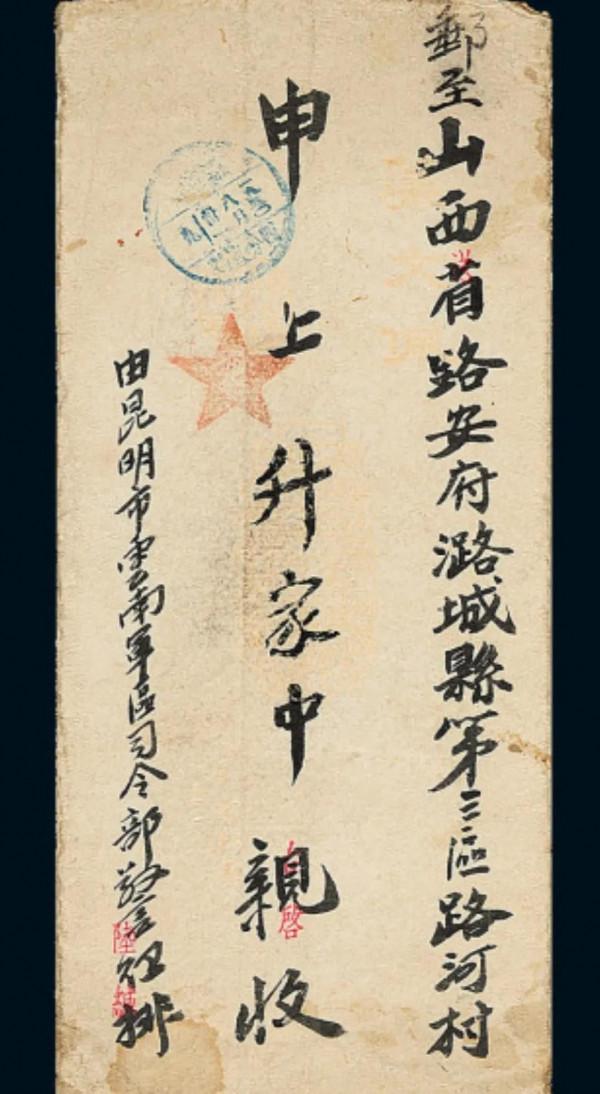 郵至山西省路安府潞城縣第三區路河村
申上升家中親收
啓
由昆明市雲南軍區司令部警排
陸緘